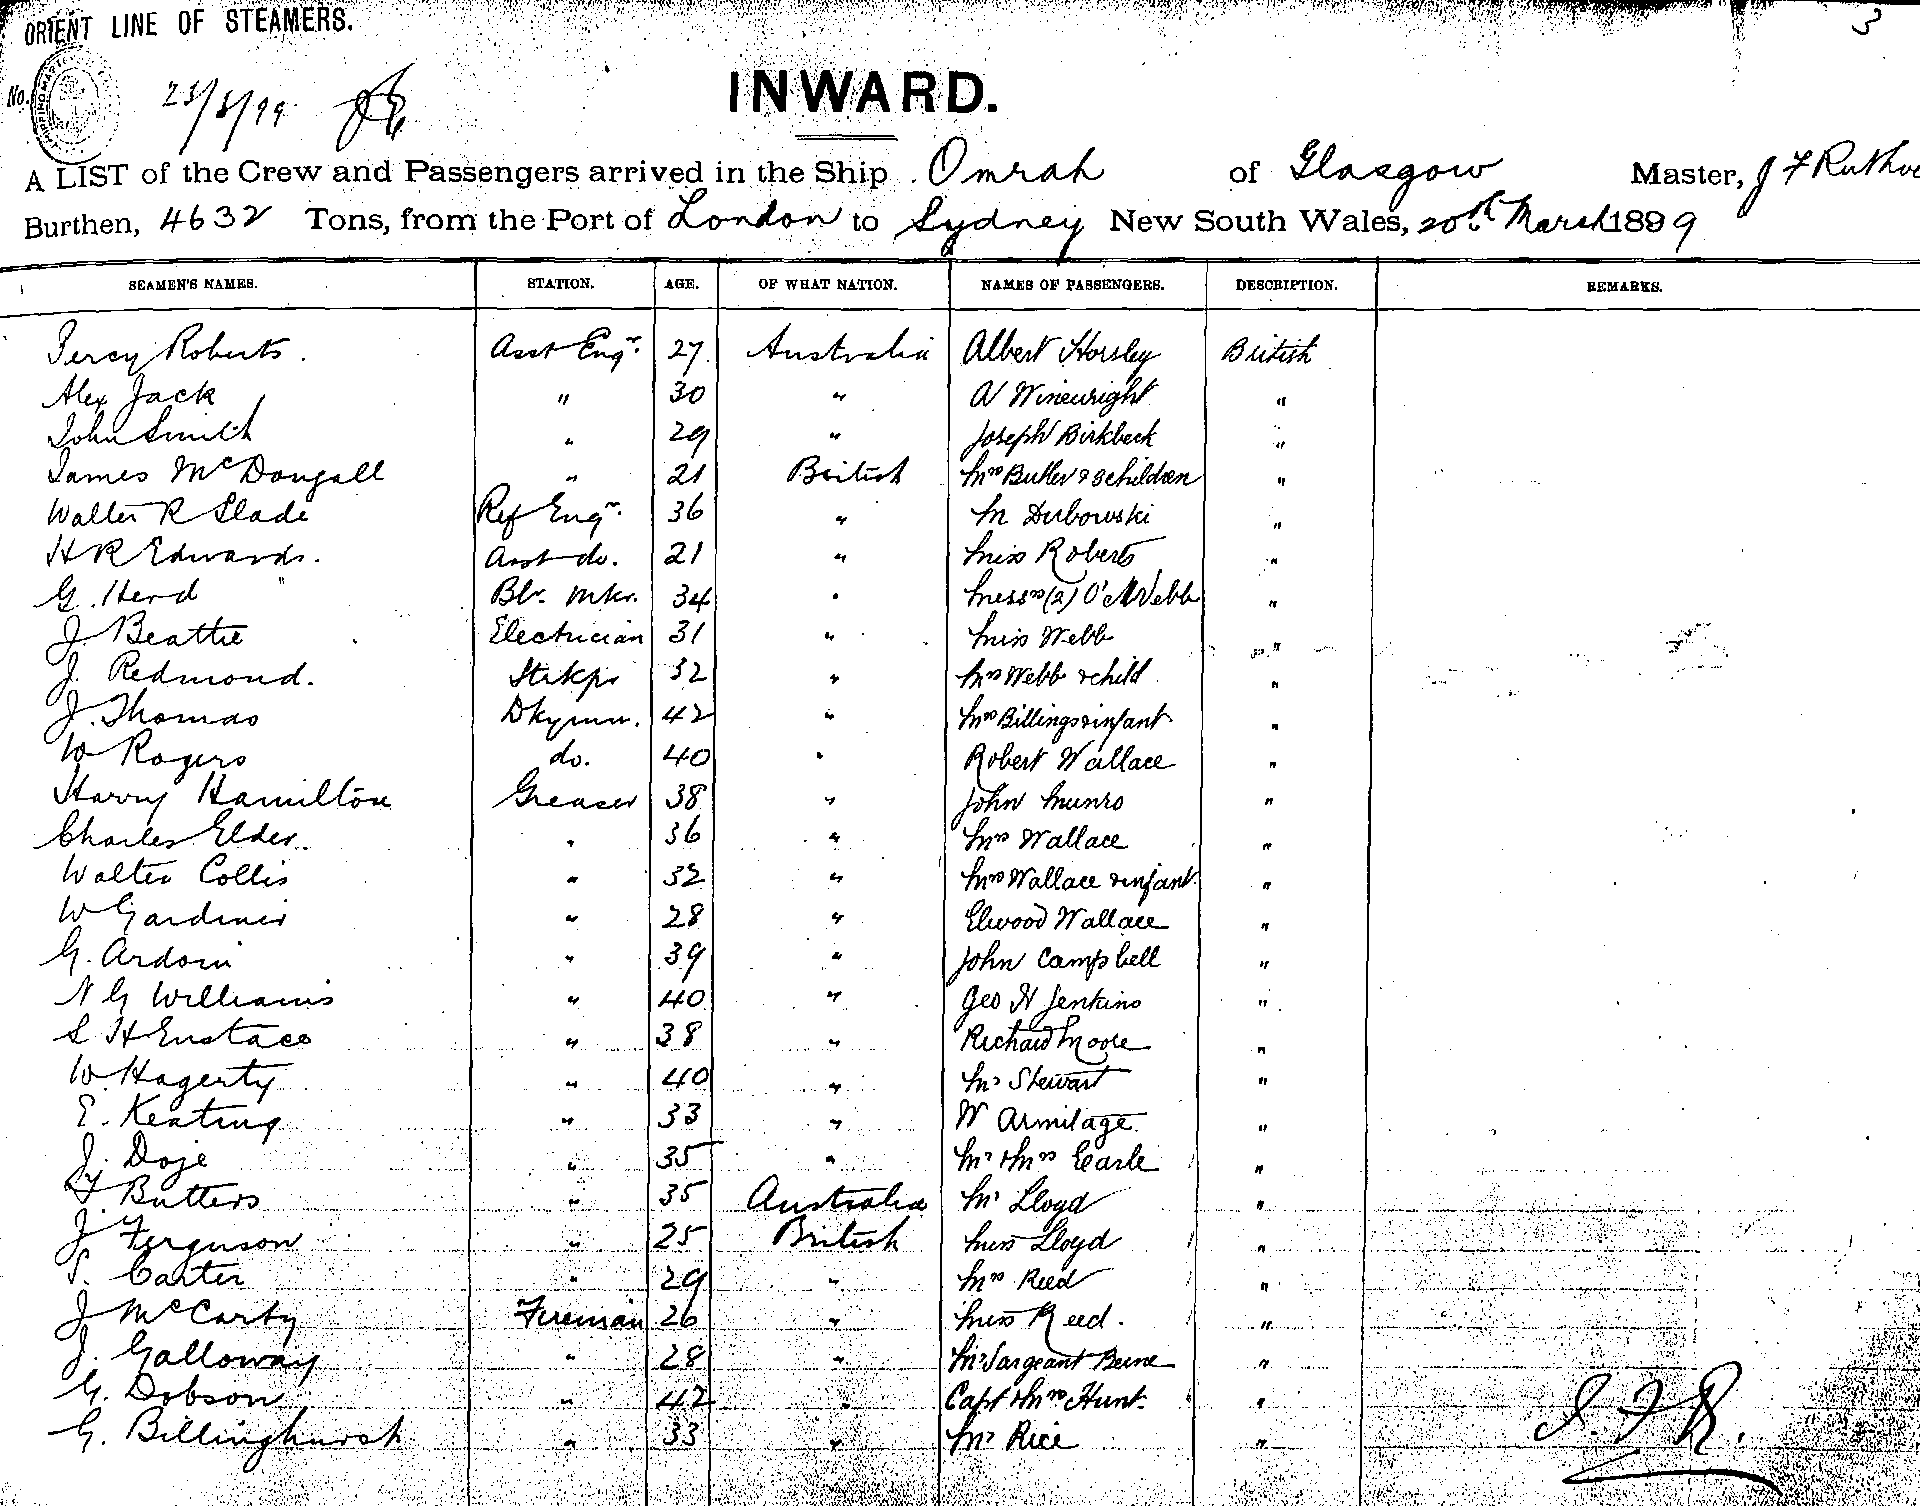 3
ORIENT LINE OF STEAMERS.
No.
23/3/99
INWARD.
A LIST of the Crew and Passengers arrived in the Ship Omrah of Glasgow Master, J F
Burthen, 4632 Tons, from the Port of London to Sydney New South Wales, 20th March 1899
SEAMEN'S NAMES. STATION. AGE. OF WHAT NATION. NAMES OF PASSENGERS. DESCRIPTION. REMARKS.
Percy Roberts. Asst Engr. 27 Australia Albert Horsley British
Alex Jack " 30 " A Winewright "
John Smith " 29 " Joseph Birkbeck "
James McDougall " 21 British Mrs Butler & children "
Walter R Slade Ref Engr. 36 " M Dubowski "
H R Edwards. Asst do. 21 " Miss Roberts "
G. Herd Blr. Mkr. 34 " Messrs (2) Webb "
J. Beattie Electrician 31 " Miss Webb "
J. Redmond. Stkpr 32 " Mrs Webb & child "
J. Thomas Dkymn. 42 " Mrs Billings & infant "
W Rogers do. 40 " Robert Wallace "
Harry Hamilton Greaser 38 " John Munro "
Charles Elder. " 36 " Mrs Wallace "
Walter Collis " 32 " Mrs Wallace & infant "
W Gardiner " 28 " Elwood Wallace "
G. Ardoin " 39 " John Campbell "
N G Williams " 40 " Geo H Jenkins "
S H Eustace " 38 " Richard Moore "
W. Hagerty " 40 " Mr Stewart "
E. Keating " 33 " W Armitage "
J. Doje " 35 " Mr & Mrs Earle "
Butters " 35 Australia Mr Lloyd "
J Ferguson " 25 British Miss Lloyd "
T. Carter " 29 " Mrs Reed "
J McCarty Fireman 26 " Miss Reed. "
J. Galloway " 28 " Mr Sargeant "
G. Dobson " 42 " Capt & Mrs Hunt. "
G. Billinghurst " 33 " Mr Rice "
J. F. R.